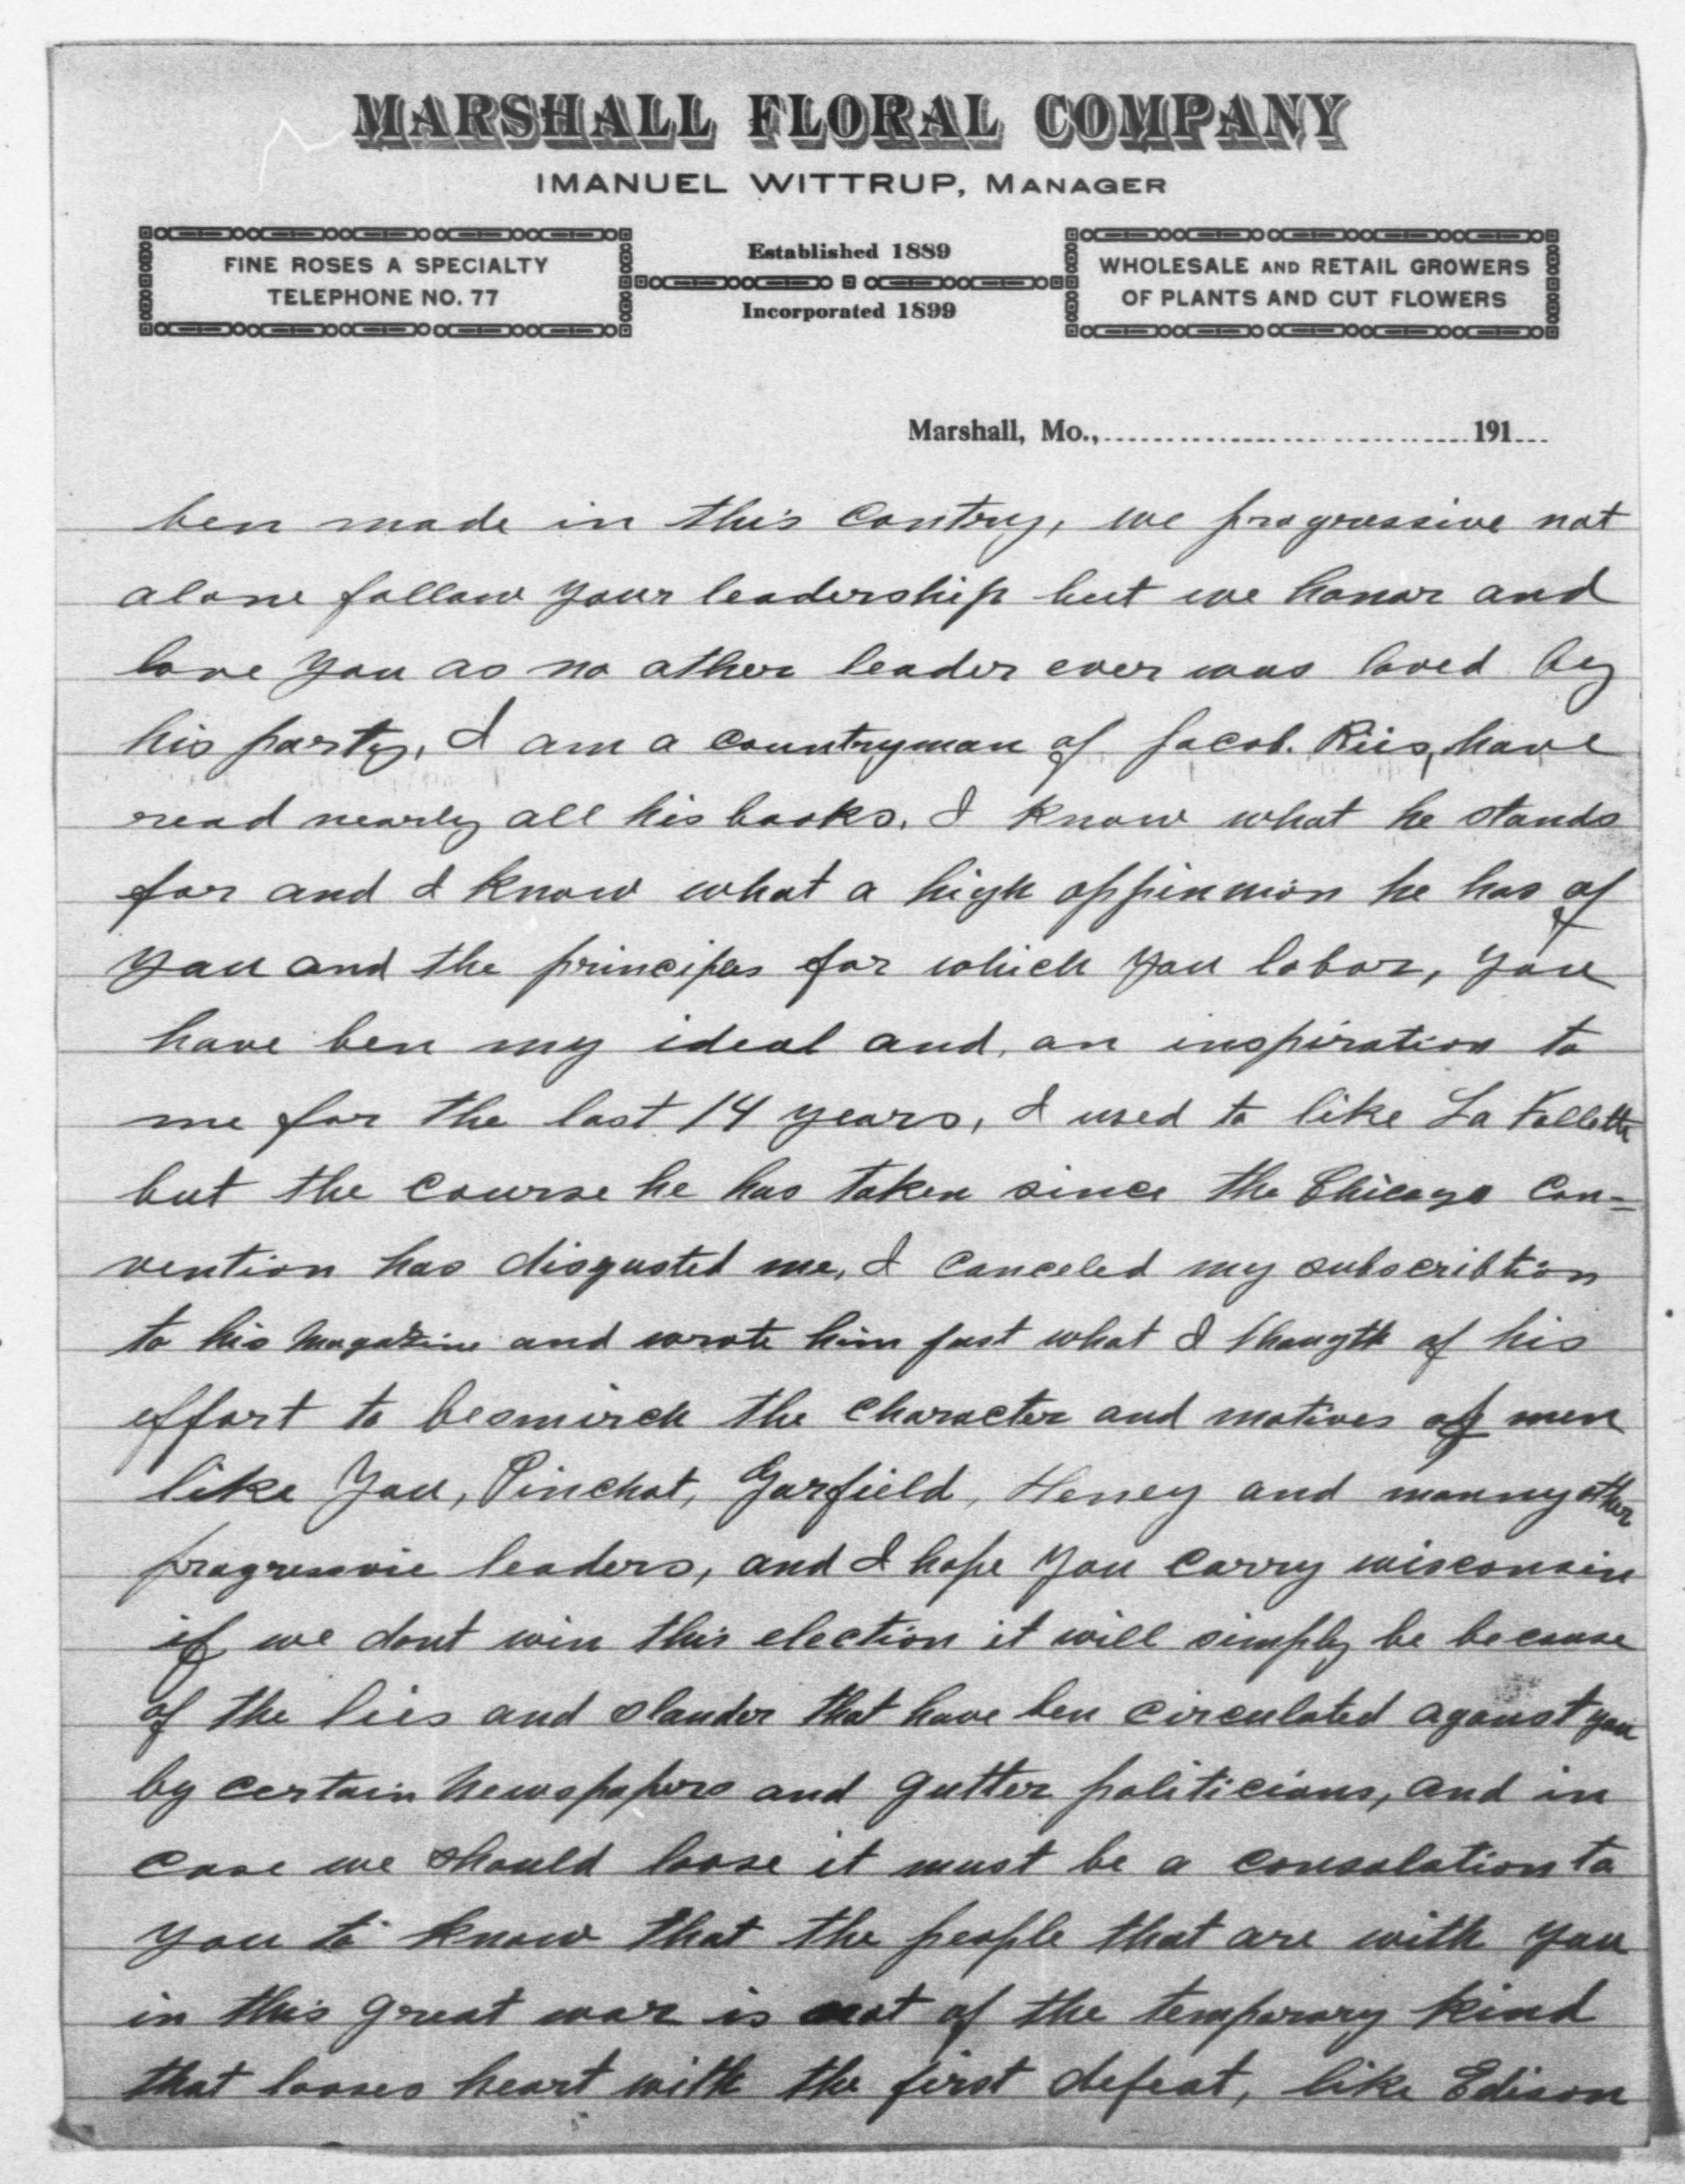 MARSHALL FLORAL COMPANY
IMANUEL WITTRUP, MANAGER
FINE ROSES A SPECIALTY
TELEPHONE NO. 77
Established 1889
Incorporated 1899
WHOLESALE AND RETAIL GROWERS
OF PLANTS AND CUT FLOWERS
Marshall, Mo., 191
ben made in this contry, we progressive not
alone follow your leadership but we honor and
love you as no other leader ever was loved by
his party, I am a countryman of Jacob. Riis, have
read nearly all his books. I know what he stands
for and I know what a high oppinnion he has of
you and the principes for which you labor, you
have ben my ideal and, an inspiration to
me for the last 14 years, I used to like La Follette
but the course he has taken since the Chicago Con-
vention has disgusted me, I canceled my subscribtion
to his magazine and wrote him just what I thougth of his
effort to besmirch the character and motives of men
like You, Pinchot, Garfield, Heney and manny other
progressvie leaders, and I hope you carry wisconsin
if we dont win this election it will simply be because
of the lies and slander that have ben circulated aganst you
by certain newspapers and gutter politicians, and in
case we should loose it must be a consolation to
you to know that the people that are with you
in this great war is not of the temporary kind
that looses heart with the first defeat, like Edison